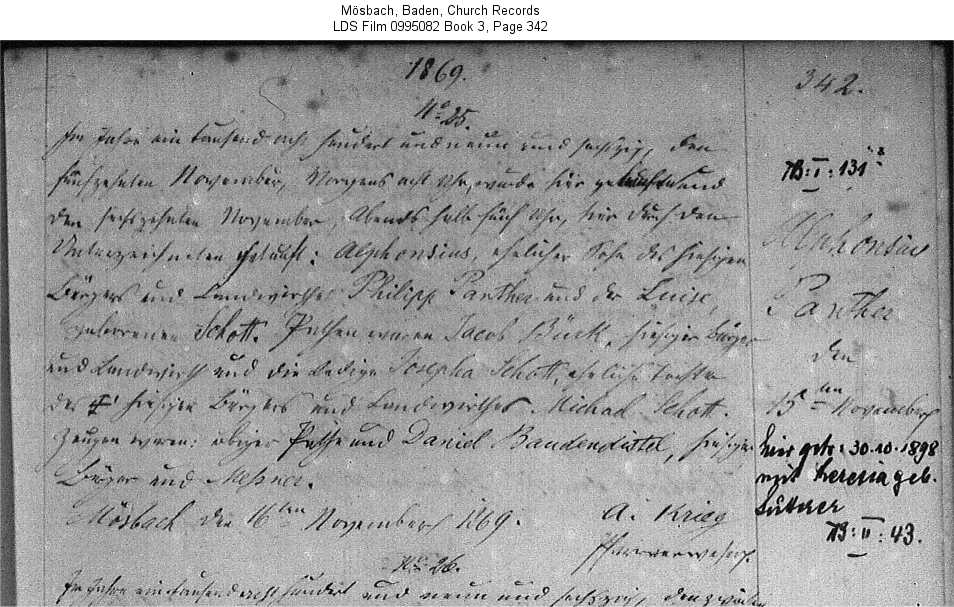 Mösbach, Baden, Church Records
LDS Film 0995082 Book 3, Page 342
1869.
342.
No 25.
Im Jahre ein tausend acht hundert und neun und sechzig, den
fünfzehnten November, Morgens acht Uhr, wurde hier geboren und
den sechzehnten November Abends halb fünf Uhr, hier durch den
Unterzeichneten getauft: Alphonsius, ehelicher Sohn des hiesigen
Bürgers und Landwirthes Philipp Panther und der Luise,
geborenen Schott. Pathen waren Jacob Bück, hiesiger Bürger
und Landwirth und die ledige Josepha Schott, eheliche Tochter
des † hiesigen Bürgers und Landwirthes Michael Schott.
Zeugen waren: obiger Pathe und Daniel Baudendistel, hiesiger
Bürger und Meßner.
Mösbach den 16ten November 1869.
A. Krieg
Pfarrverweser.
B: I: 131
Alphonsius
Panther
den
15ten November
hier getr: 30.10.1898
mit Theresia geb.
B: II: 43.
No 26.
Im Jahre ein tausend acht hundert und neun und sechzig, den zwölften